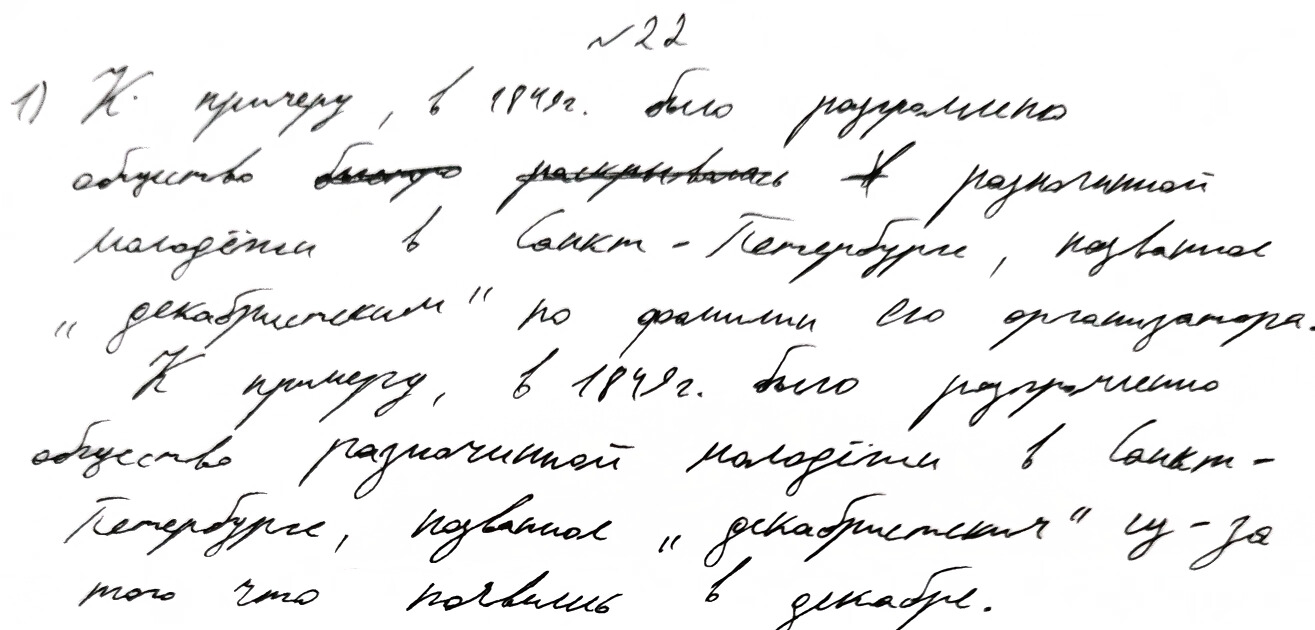 №22
1) К примеру, в 1849г. было разгромлено
общество быстро раскрывалась разночинной
молодёжи в Санкт-Петербурге, названное
„декабристским" по фамилии его организатора.
К примеру, в 1849г. было разгромлено
общество разночинной молодёжи в Санкт-
Петербурге, названное „декабристским" из-за
того что появились в декабре.